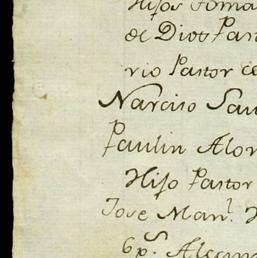 Hijos Toma
de Dios Past
rio Pastor ce
Narciso San
Paulin Alon
Hijo Pastor
Jose Man.l H
6 p.s Alcan